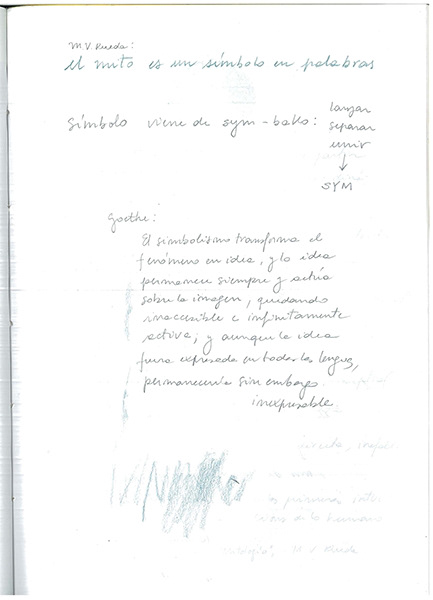 M.V. Rueda:
el mito es un símbolo en palabras
Símbolo viene de sym-ballo: lanzar
separar
unir
↓
SYM
Goethe:
El simbolismo transforma el
fenómeno en idea, y la idea
permanece siempre y actúa
sobre la imagen, quedando
inaccesible e infinitamente
activa; y aunque la idea
fuera expresada en todas las lenguas,
permanecería sin embargo
inexpresable